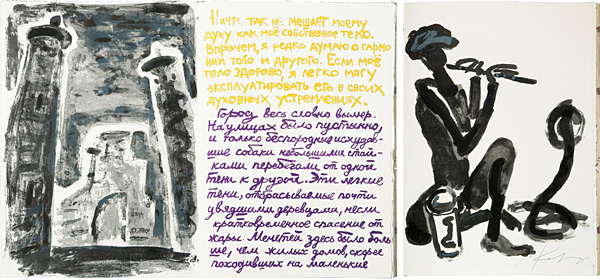 Ничто так не мешает моему
духу как моё собственное тело.
Впрочем, я редко думаю о гармо
нии того и другого. Если моё
тело здорово, я легко могу
эксплуатировать его в своих
духовных устремлениях.
Город весь словно вымер.
На улицах было пустынно,
и только беспородные исхудав-
шие собаки небольшими стай-
ками перебегали от одной
тени к другой. Эти легкие
тени, отбрасываемые почти
увядшими деревцами, несли
кратковременное спасение от
жары. Мечетей здесь было боль
ше, чем жилых домов, скорее
походивших на маленькие